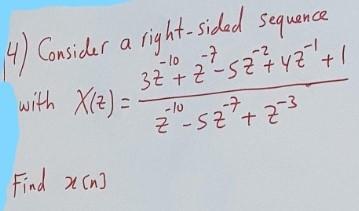 4) Consider a right-sided sequence
with X(z) = (3z^-10 + z^-7 - 5z^-2 + 4z^-1 + 1) / (z^-10 - 5z^-7 + z^-3)
Find x[n]